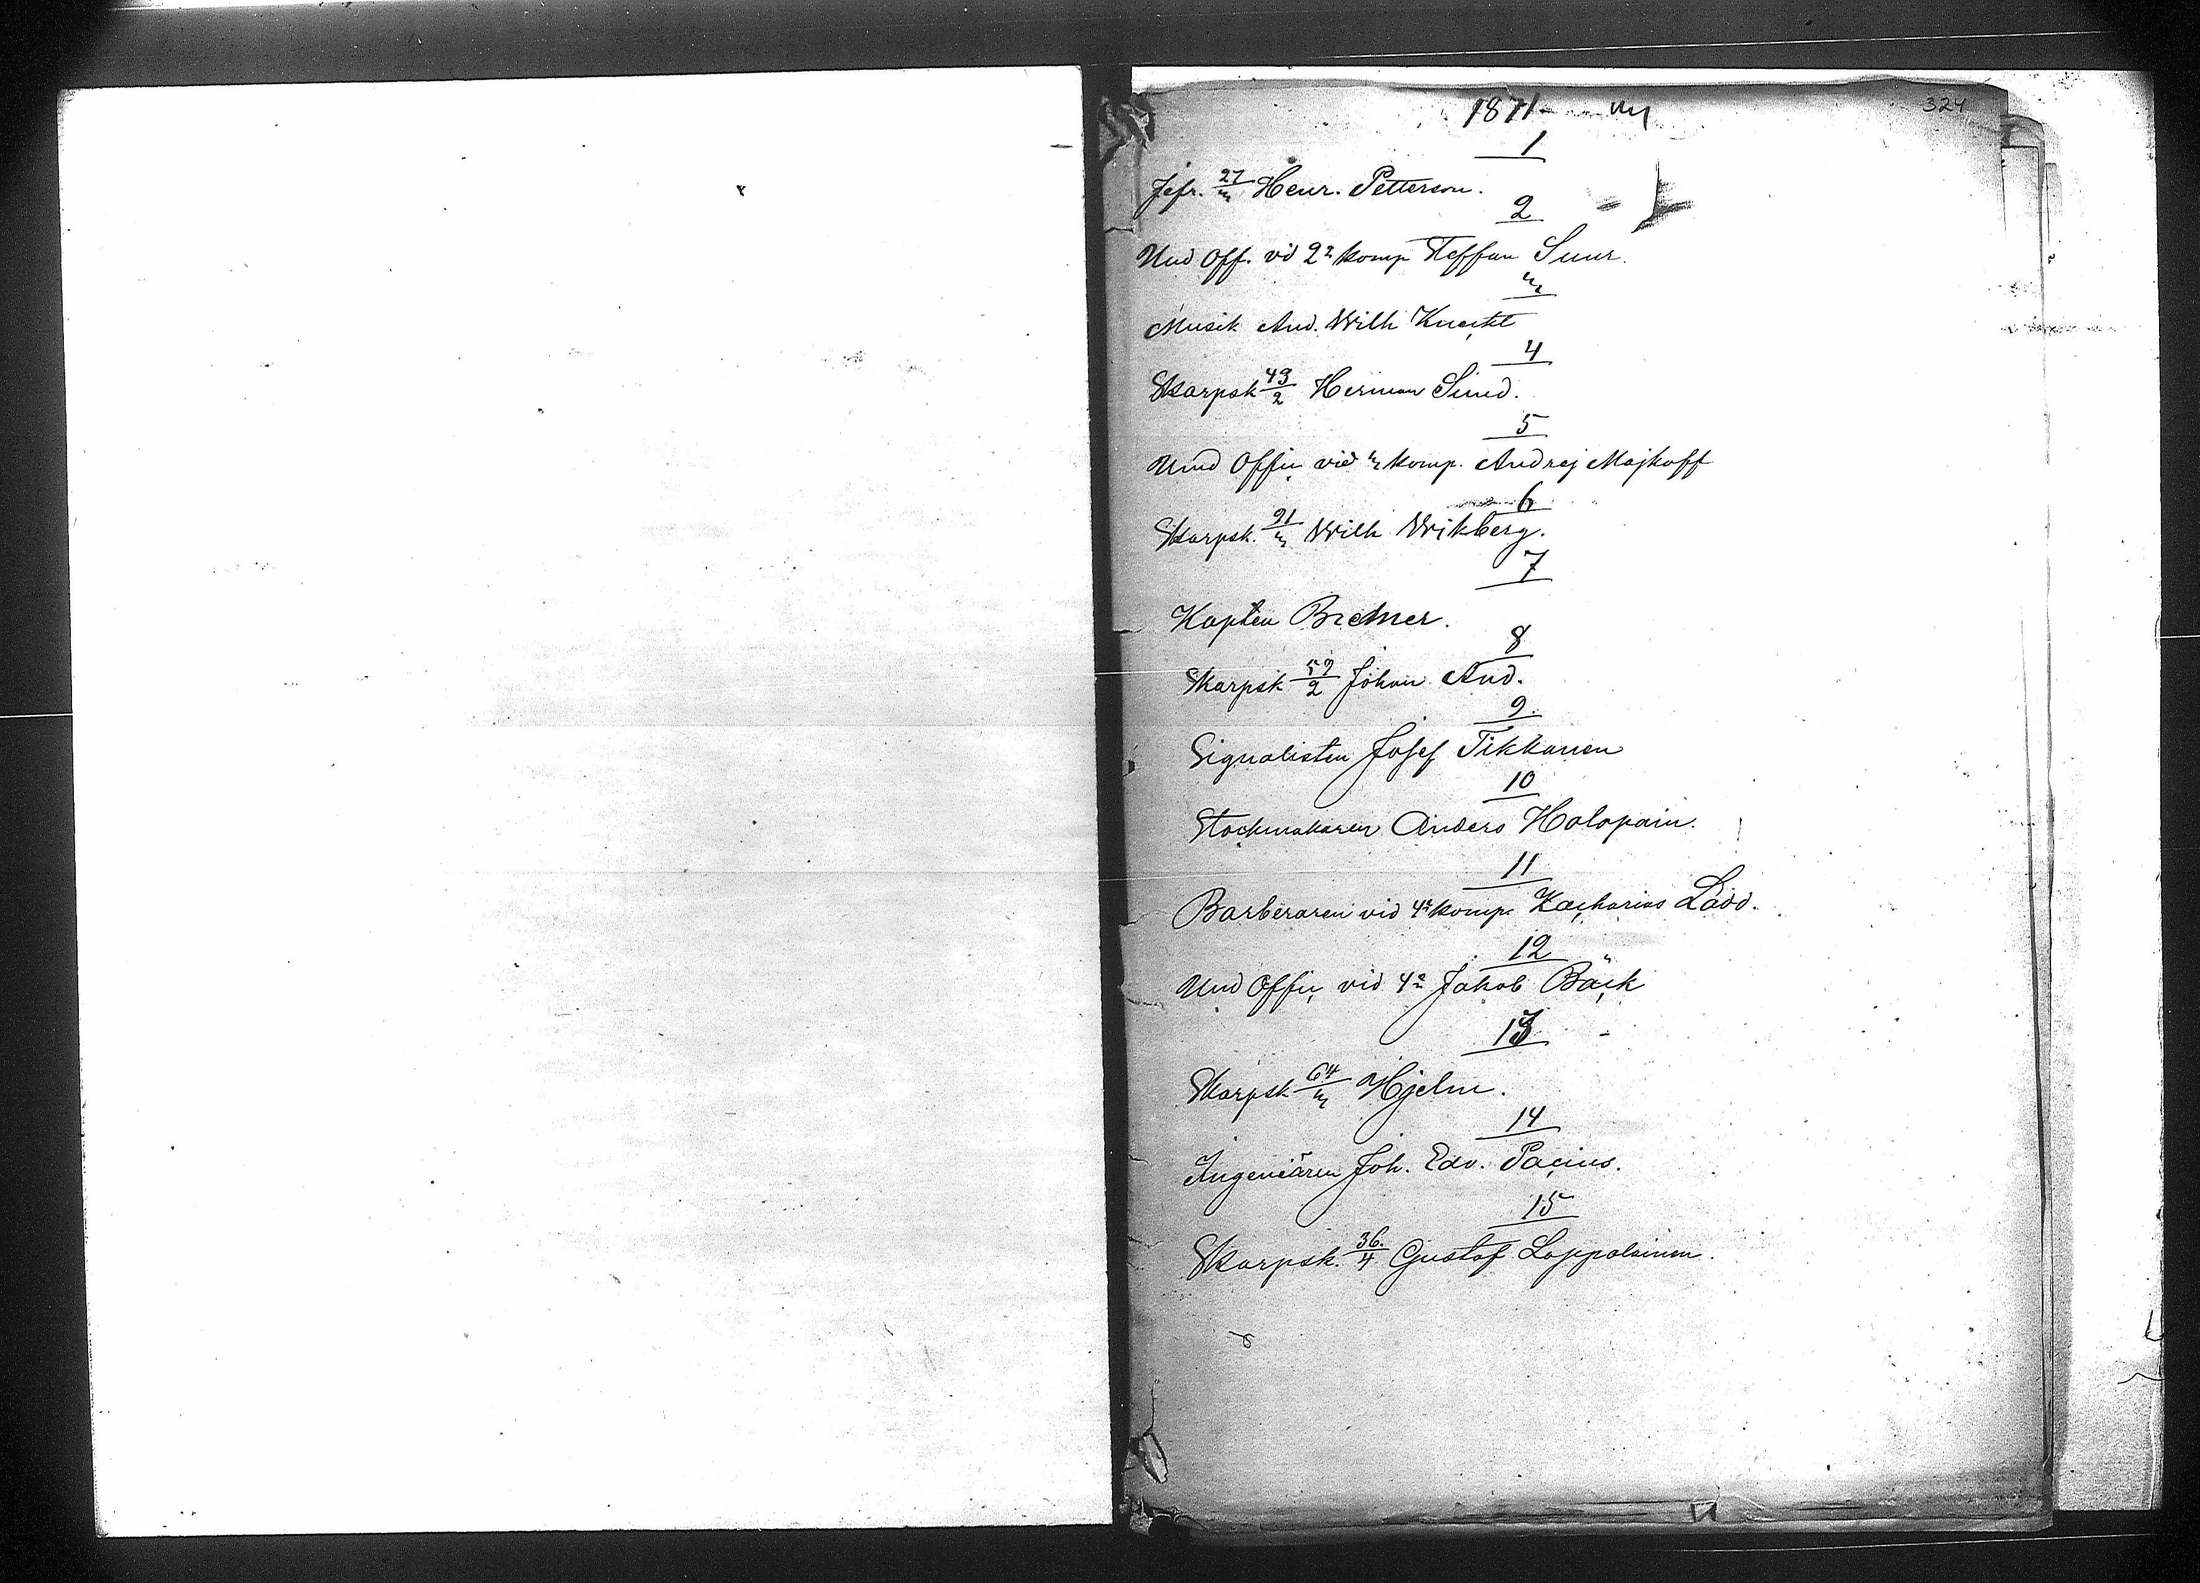 324
1871-
1
Jefr. 27/3 Henr. Petterson.
2
Und Off. vd 2a komp Steffan Suur.
3
Musik And. Wilh Knecht
4
Skarpsk 43/2 Herman Sund.
5
Und Offic vid 3 komp. Andrej Majkoff
6
Skarpsk. 91/3 Wilh Wikberg.
7
Kapten Bremer.
8
Skarpsk 59/2 Johan And.
9.
Signalisten Josef Tikkanen
10
Stockmakaren Anders Holopain.
11
Barberaren vid 4a komp Zacharias Ladd.
12
Und Offic vid 4a Jakob Bäck
13
Skarpsk 64/3 Hjelm.
14
Ingeniören Joh. Edv. Pacius.
15
Skarpsk. 36./4 Gustaf Loppalainen.